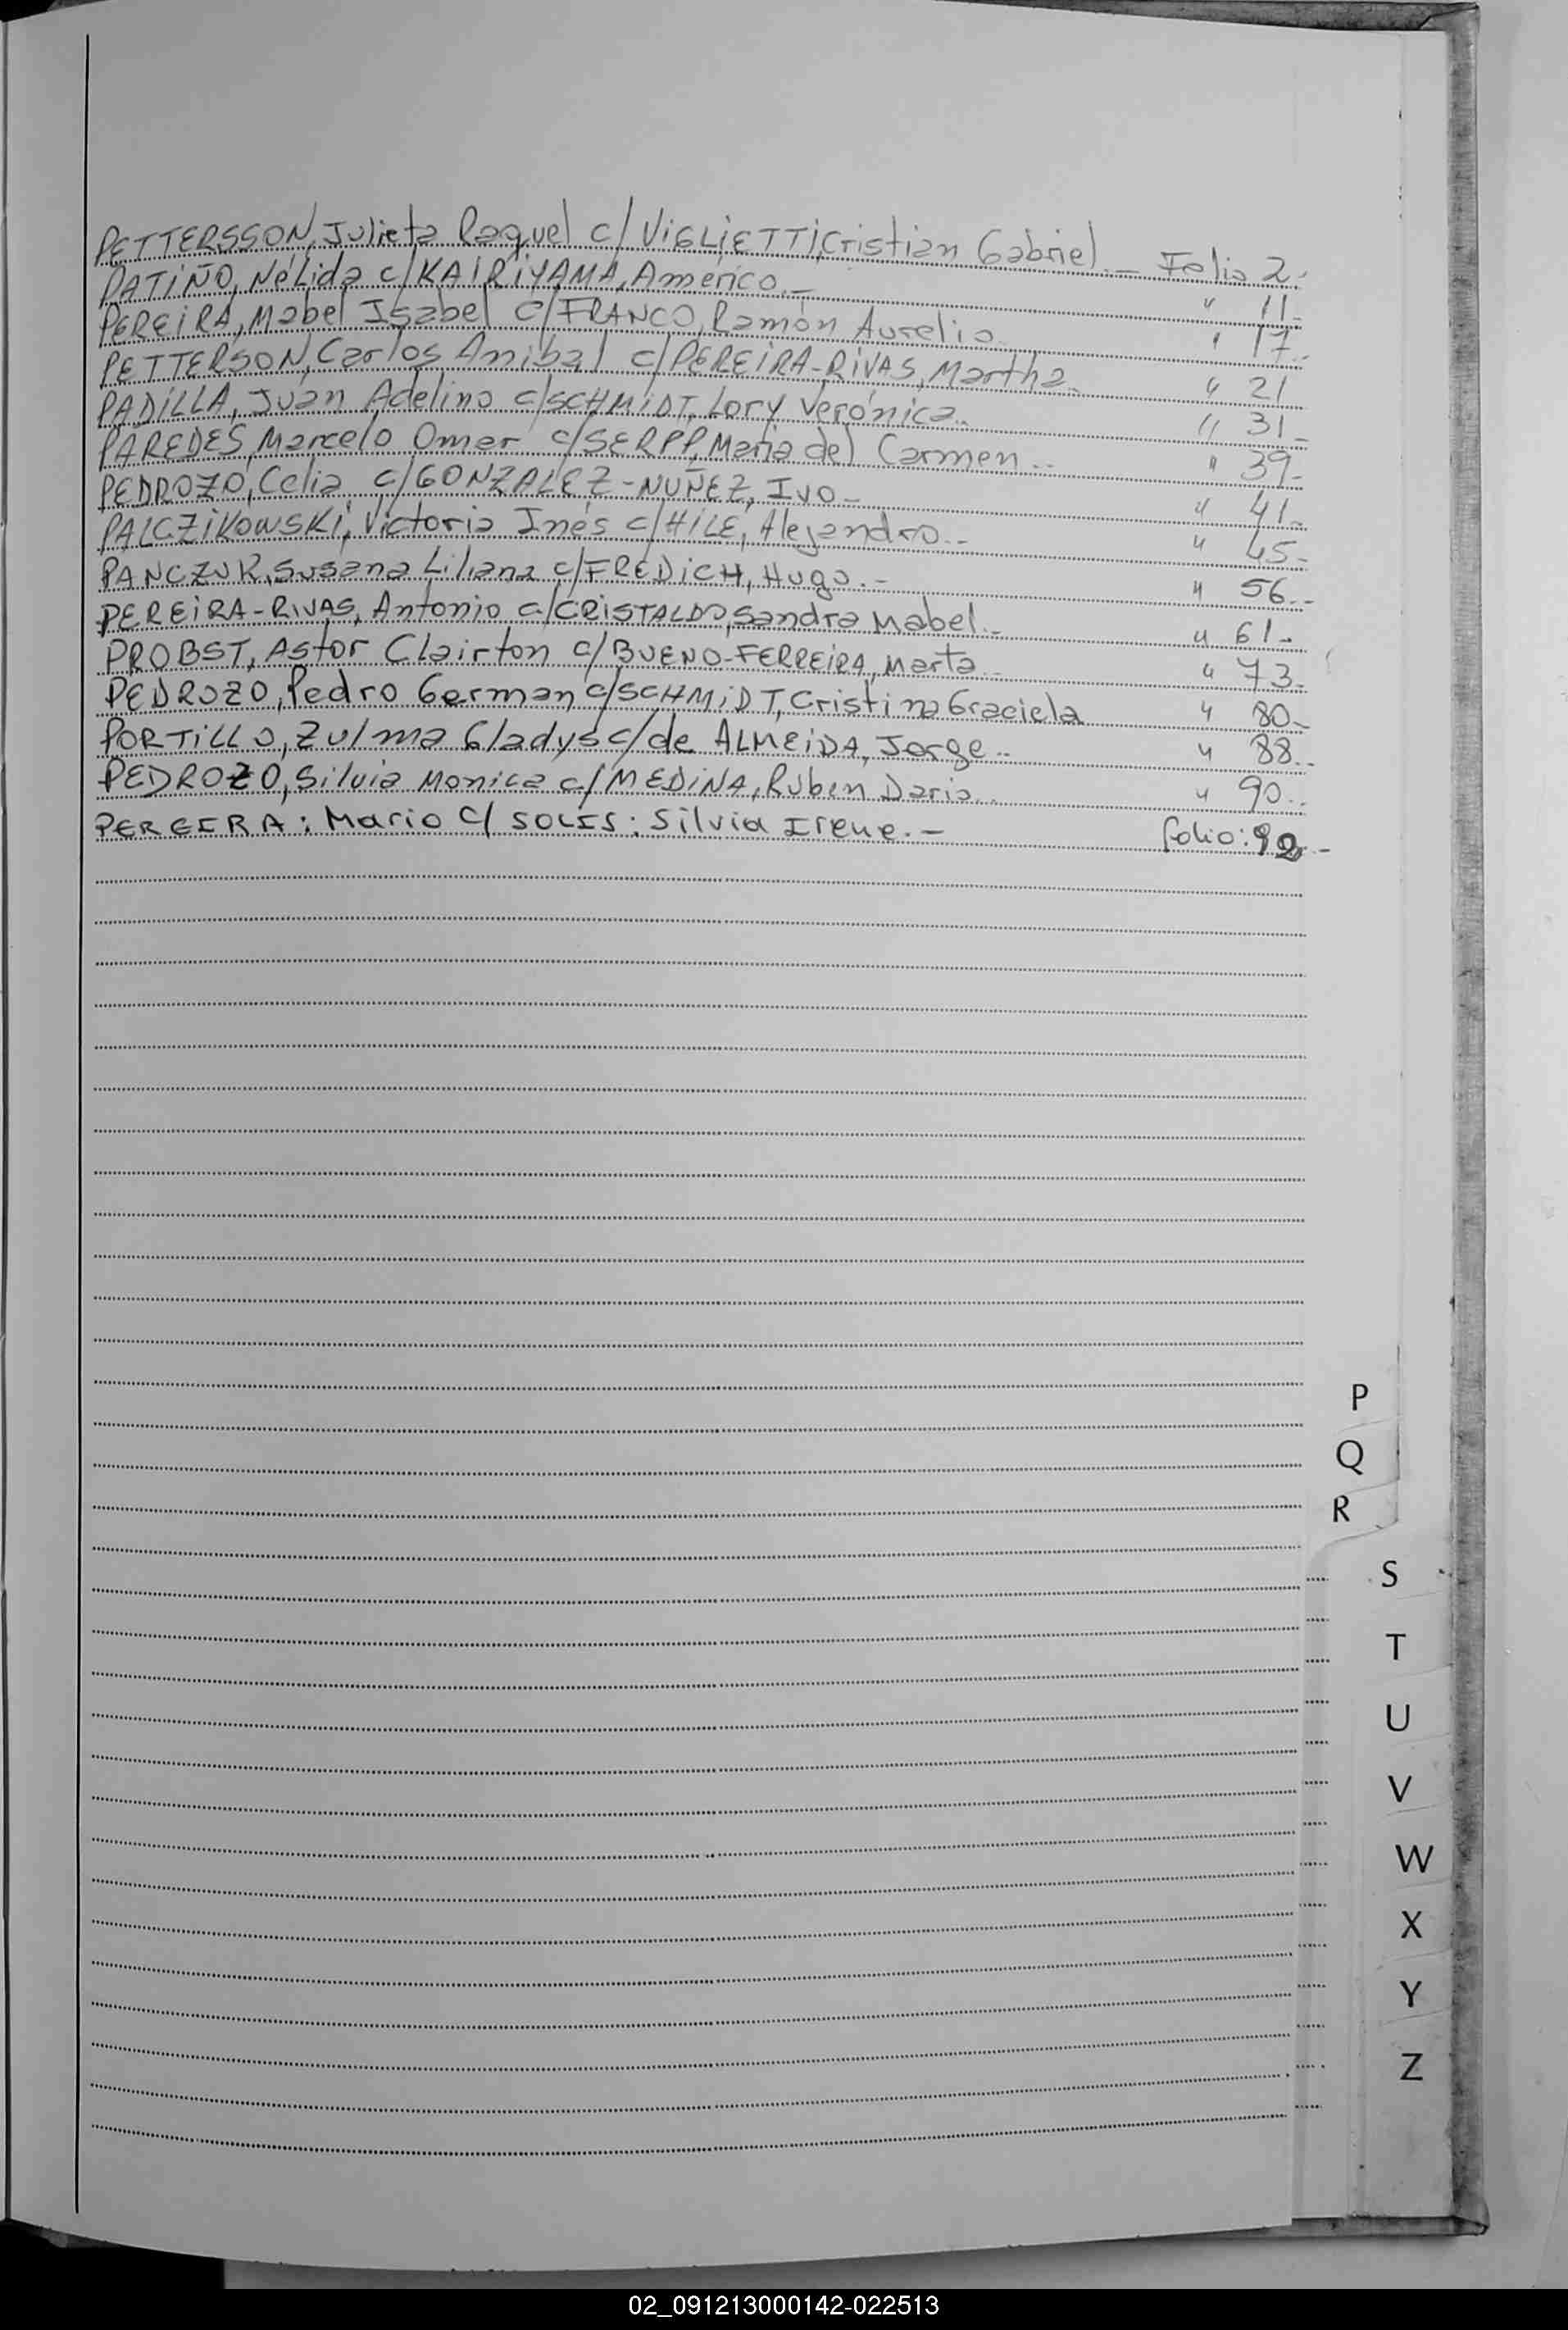 PETTERSSON, Julieta Raquel c/ ViGLiETTi, Cristian Gabriel.- Folio 2.
PATiÑO, Nélida c/ KAIRiYAMA, Américo.- " 11-
PEREiRA, Mabel Isabel c/ FRANCO, Ramón Aurelio. " 17-
PETTERSON, Carlos Anibal c/ PEREiRA-RiVAS, Martha. " 21
PADiLLA, Juan Adelino c/ SCHMiDT, Lory Verónica.. " 31-
PAREDES, Marcelo Omer c/ SERPP, Maria del Carmen.. " 39-
PEDROZO, Celia c/ GONZALEZ-NUÑEZ, IVO- " 41-
PALCZiKOWSKi, Victoria Inés c/ HiLE, Alejandro.- " 45-
PANCZUK, Susana Liliana c/ FREDiCH, Hugo.- " 56.-
PEREiRA-RiVAS, Antonio c/ CRiSTALDO, Sandra Mabel.- " 61-
PROBST, Astor Clairton c/ BUENO-FERREiRA, Marta.. " 73-
PEDROZO, Pedro German c/ SCHMiDT, Cristina Graciela " 80-
PORTiLLO, Zulma Gladys c/ de ALMEiDA, Jorge.. " 88..
PEDROZO, Silvia Monica c/ MEDiNA, Ruben Dario.. " 90..
PEREIRA: Mario c/ SOLIS: Silvia Irene.- folio: 92.-
P
Q
R
S
T
U
V
W
X
Y
Z
02_091213000142-022513